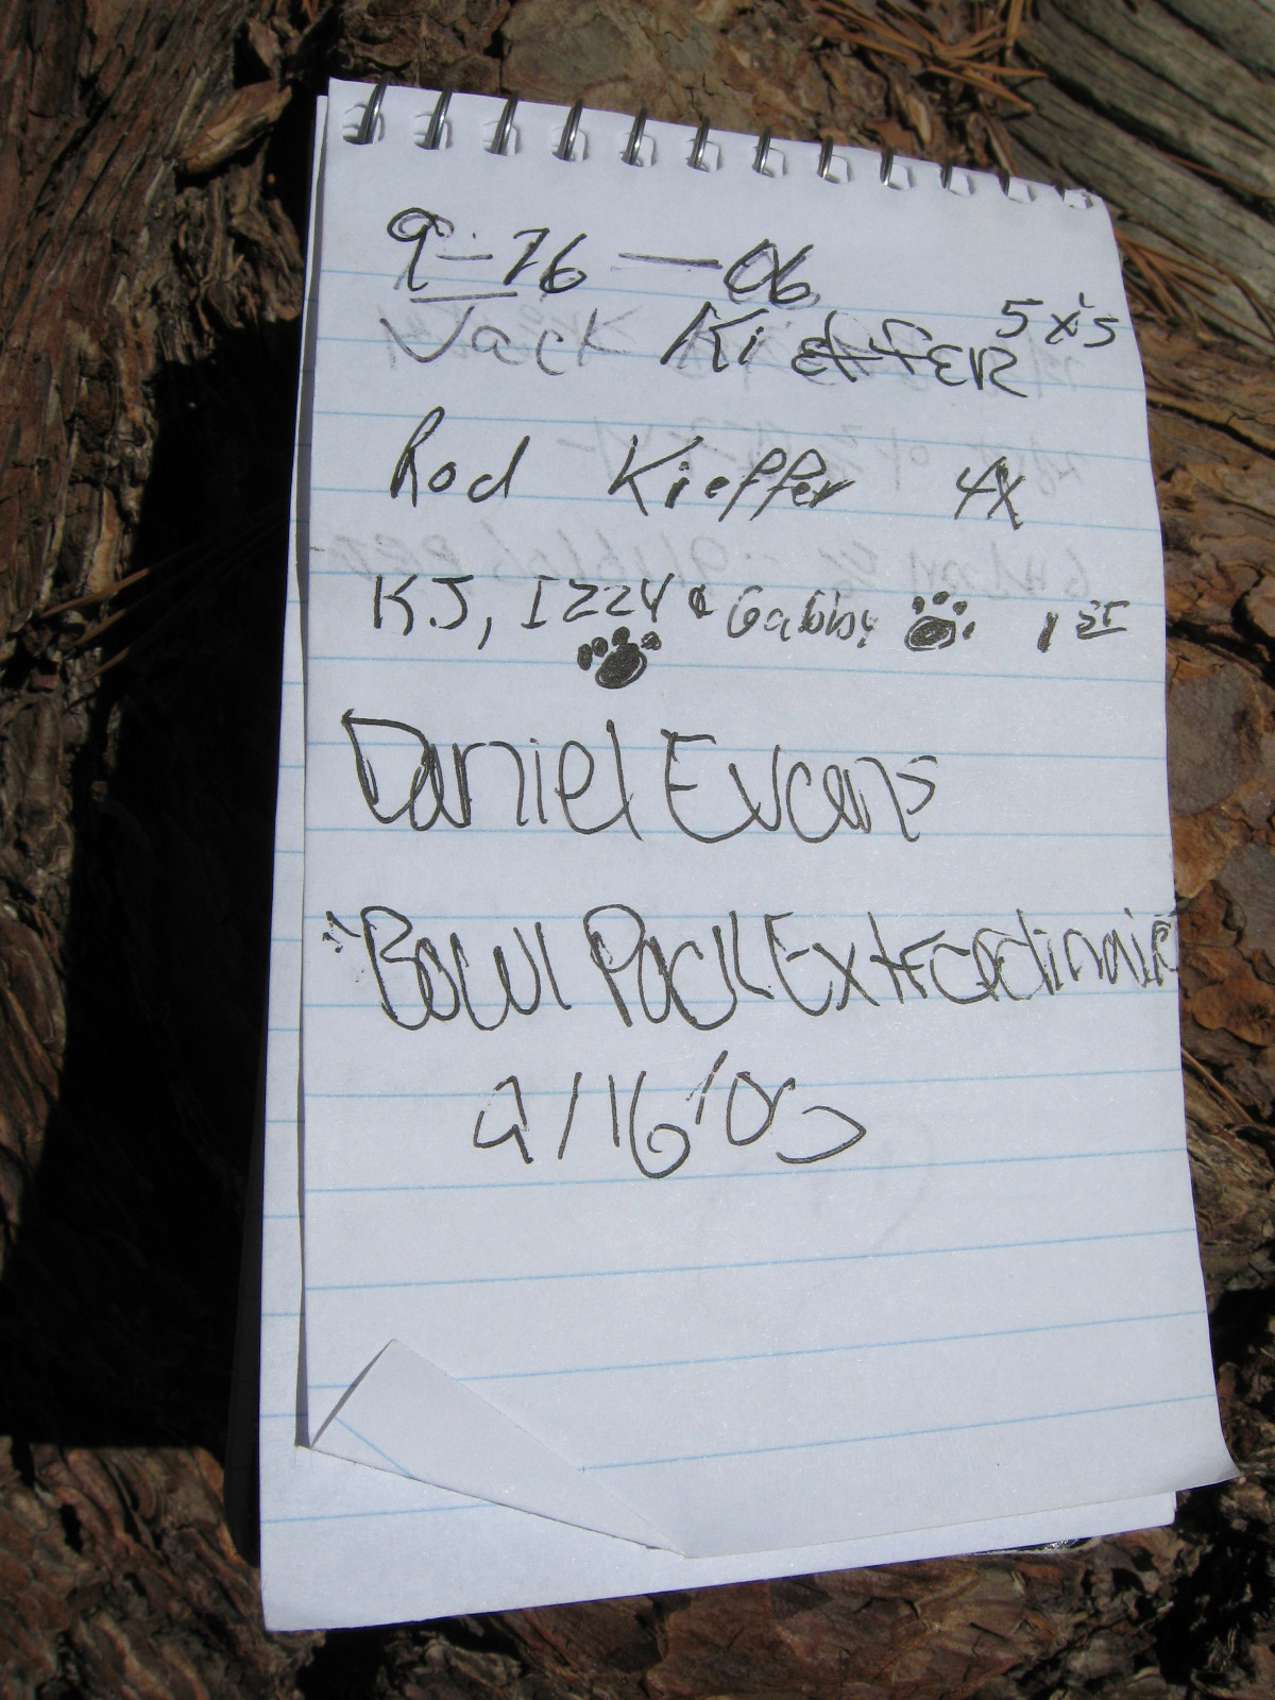 9-16-06
Jack Kieffer 5x's
Rod Kieffer 4X
KJ, Izzy & Gabby 1st
Daniel Evans
"Bowl Pack Extraordinair
9/16/06